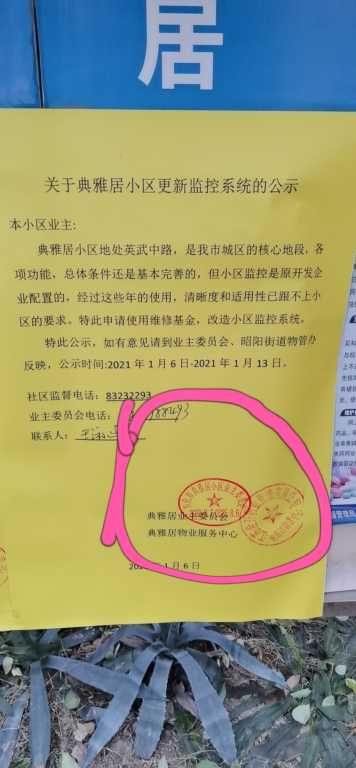 居
关于典雅居小区更新监控系统的公示
本小区业主:
典雅居小区地处英武中路，是我市城区的核心地段，各
项功能，总体条件还是基本完善的，但小区监控是原开发企
业配置的，经过这些年的使用，清晰度和适用性已跟不上小
区的要求。特此申请使用维修基金，改造小区监控系统。
特此公示，如有意见请到业主委员会、昭阳街道物管办
反映，公示时间:2021 年 1 月 6 日-2021 年 1 月 13 日。
社区监督电话: 83232293
业主委员会电话:
联系人:
典雅居业主委员会
典雅居物业服务中心
年 1 月 6 日